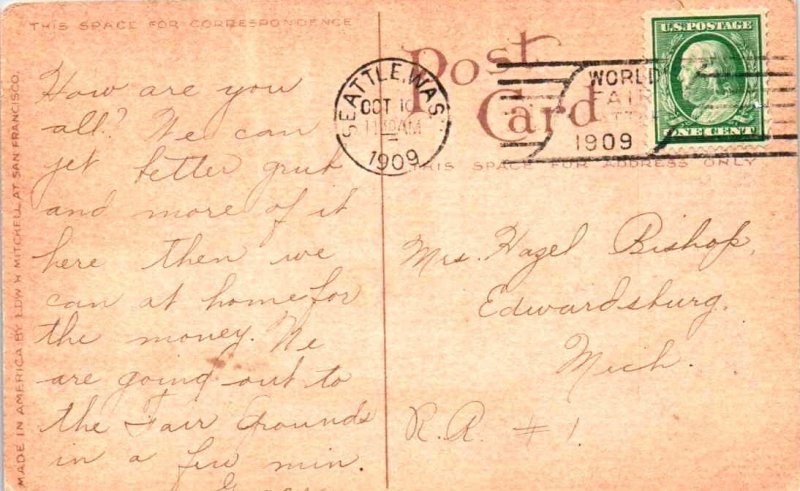 THIS SPACE FOR CORRESPONDENCE
How are you
all? We can
get better grub
and more of it
here then we
can at home for
the money. We
are going out to
the Fair Grounds
in a few min.
MADE IN AMERICA BY EDW. H. MITCHELL AT SAN FRANCISCO.
Post
Card
THIS SPACE FOR ADDRESS ONLY
SEATTLE, WASH.
OCT 10
11 30 AM
1909
WORLD'
FAIR
1909
U.S. POSTAGE
ONE CENT
Mrs. Hazel Bishop,
Edwardsburg.
Mich.
R.R. #1.